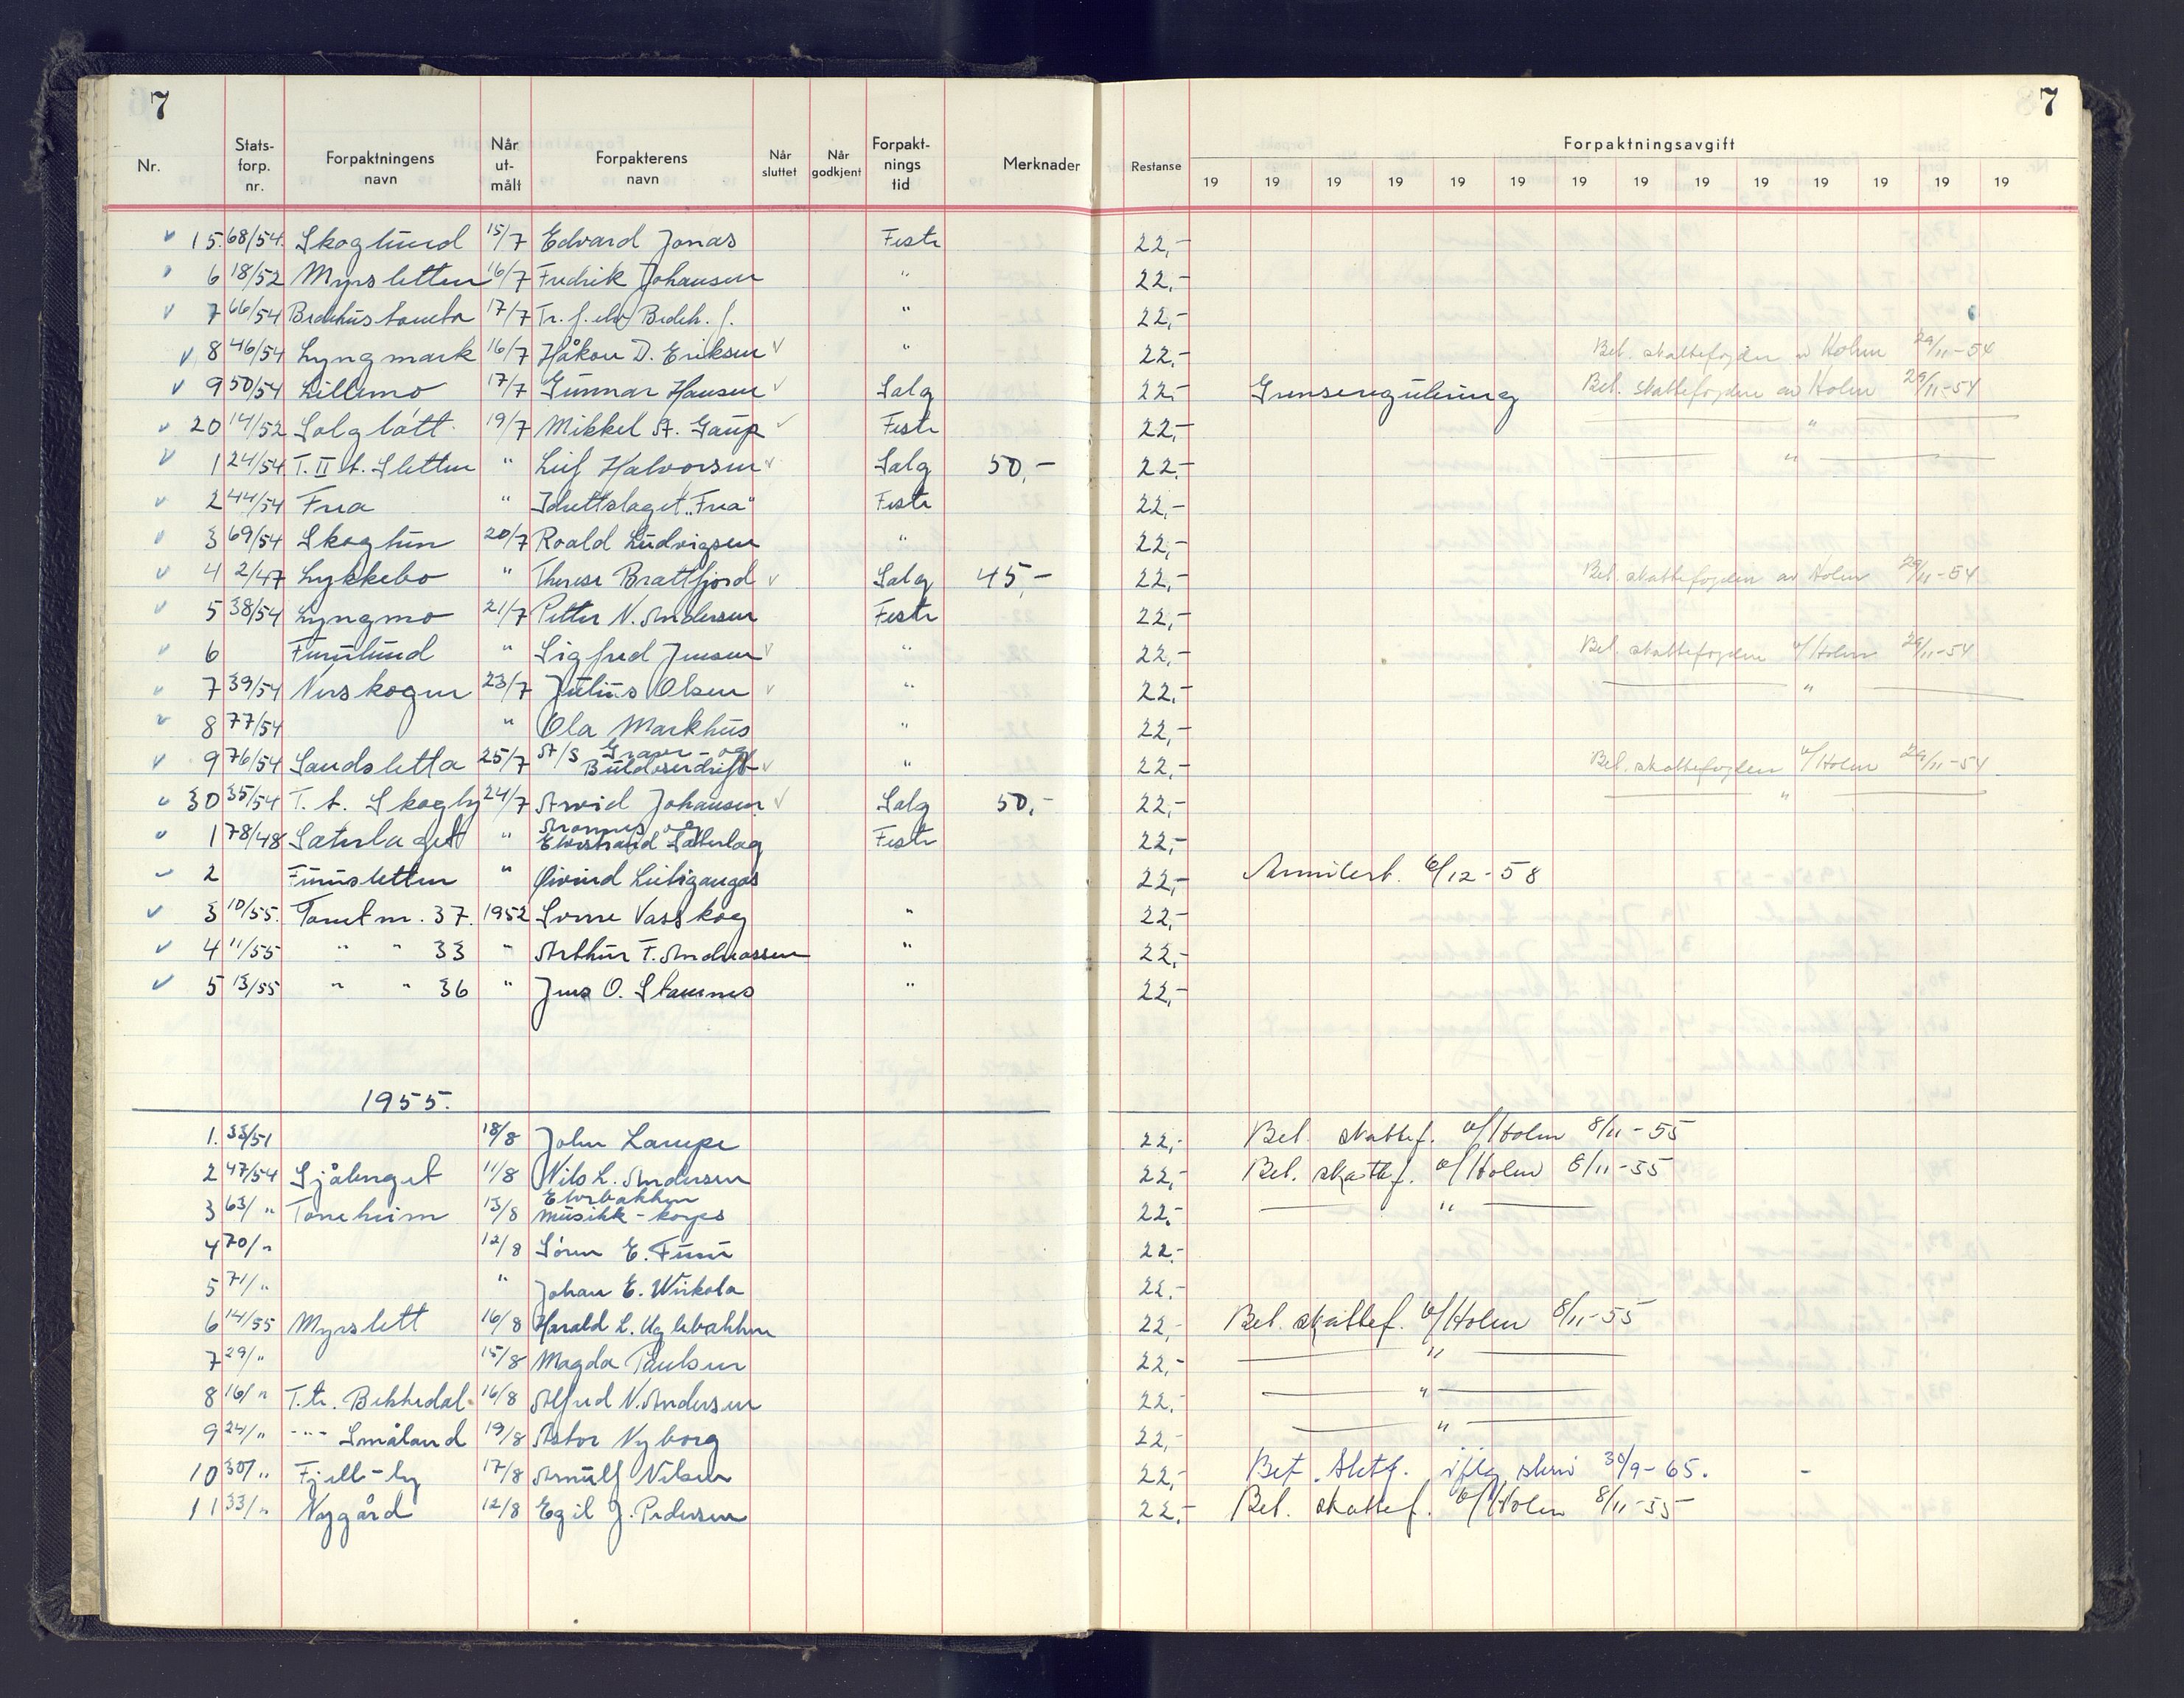 7 7
Nr. Stats-forp. nr. Forpaktningens navn Når ut-målt Forpakterens navn Når sluttet Når godkjent Forpakt-nings tid Merknader Restanse Forpaktningsavgift
19 19 19 19 19 19 19 19 19 19 19 19 19 19
v 15. 68/54. Skoglund 15/7 Edvard Jonas Feste 22,-
6 18/52 Myrsletten 16/7 Fredrik Johansen " 22,-
v 7 66/54 Bedehustomta 17/7 Tr. f. Bedeh. f. " 22,-
v 8 46/54 Lyngmark 16/7 Håkon D. Eriksen v " 22,- Bet. skattefogden v Holm 29/11-54
v 9 50/54 Lillemo 17/7 Gunnar Hansen v Salg 22,- Grenseregulering Bet. skattefogden av Holm 29/11-54
v 20 14/52 Solglått 19/7 Mikkel A. Gaup v Feste 22,- "
v 1 24/54 T. II t. Sletten " Leif Halvorsen v Salg 50,- 22,- "
v 2 44/54 Frea " Idrettslaget "Frea" Feste 22,-
v 3 69/54 Skogtun 20/7 Roald Ludvigsen " 22,-
v 4 2/47 Lykkebo " Therese Brattfjord v Salg 45,- 22,- Bet. skattefogden av Holm 29/11-54
v 5 38/54 Lyngmo 21/7 Petter N. Andersen Feste 22,-
v 6 Furulund " Sigfred Jensen v " 22,- Bet. skattefogden v/Holm 29/11-54
v 7 39/54 Nerskogen 23/7 Julius Olsen v " 22,- "
v 8 77/54 " Ola Markhus " 22,-
v 9 76/54 Sandsletta 25/7 A/S Grave- og Buldoserdrift v " 22,- Bet. skattefogden v/Holm 29/11-54
v 30 35/54 T. t. Skogly 24/7 Arvid Johansen v Salg 50,- 22,- "
v 1 78/48 Sæterlaget " Aronnes og Elvestrand Sæterlag Feste 22,-
v 2 Furusletten " Øivind Leibigangas 22,- Annulert. 6/12-58
v 3 10/55. Tomt nr. 37. 1952 Sverre Vasskog " 22,-
v 4 11/55 " " 33 " Arthur F. Andreassen " 22,-
v 5 13/55 " " 36 " Jens O. Stamnes " 22,-
1955.
1. 33/51 18/8 John Lampe 22,- Bet. skattef. v/Holm 8/11-55
2 47/54 Sjåenget 11/8 Nils L. Andersen 22,- Bet. skattef. v/Holm 8/11-55
3 63/ " Toneheim 13/8 Elvebakken musikk-korps 22,- "
4 70/ " 12/8 Sören E. Furu 22,-
5 71/ " " Johan E. Wirkola 22,-
6 14/55 Myrslett 16/8 Harald L. Uglebakken 22,- Bet. skattef. v/Holm 8/11-55
7 29/ " 15/8 Magda Paulsen 22,- "
8 16/ " T.t. Bekkedal. 16/8 Alfred N. Andersen 22,- "
9 24/ " -"- Småland 19/8 Astor Nyborg 22,- "
10 30/ " Fjell-ly 17/8 Arnulf Nilsen 22,- Bet. Sktf. iflg skriv 30/9-65. -
11 33/ " Nygård 12/8 Egil J. Pedersen 22,- Bet. skattef. v/Holm 8/11-55